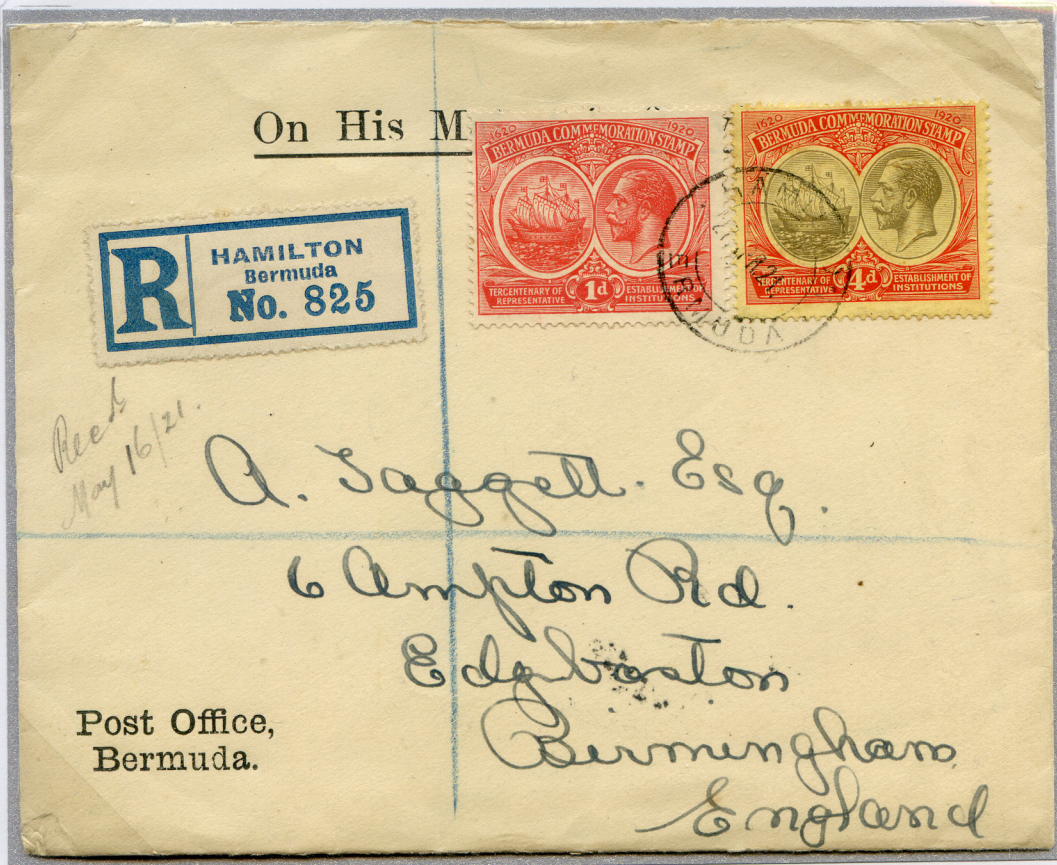 On His M
1620 1920
BERMUDA COMMEMORATION STAMP
TERCENTENARY OF REPRESENTATIVE 1d ESTABLISHMENT OF INSTITUTIONS
1620 1920
BERMUDA COMMEMORATION STAMP
TERCENTENARY OF REPRESENTATIVE 4d ESTABLISHMENT OF INSTITUTIONS
BERMUDA
R
HAMILTON
Bermuda
No. 825
Recd
May 16/21.
A. Taggett. Esq.
6 Ampton Rd.
Edgbaston
Birmingham
England
Post Office,
Bermuda.